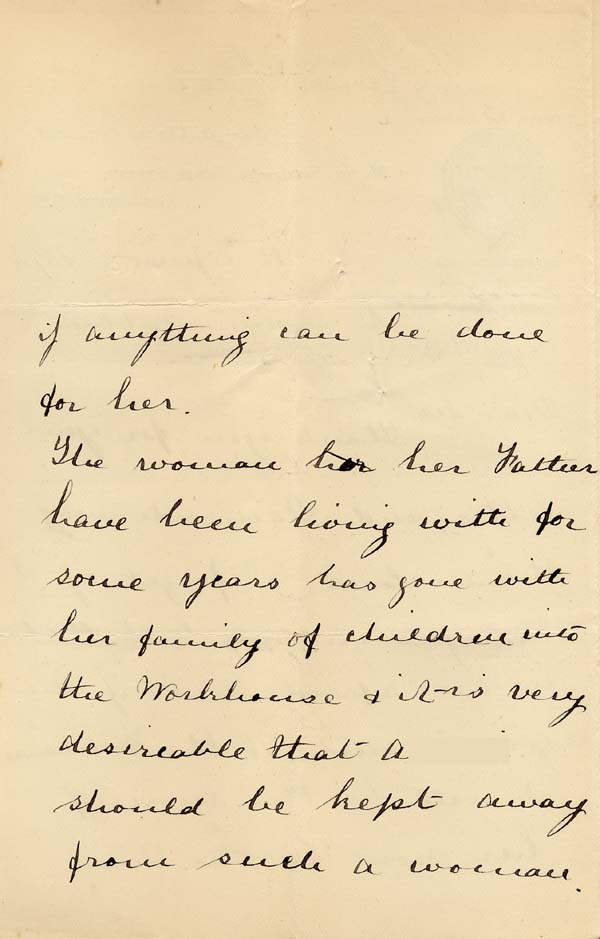 if anything can be done
for her.
The woman her her Father
have been living with for
some years has gone with
her family of children into
the Workhouse & it is very
desireable that A
should be kept away
from such a woman.